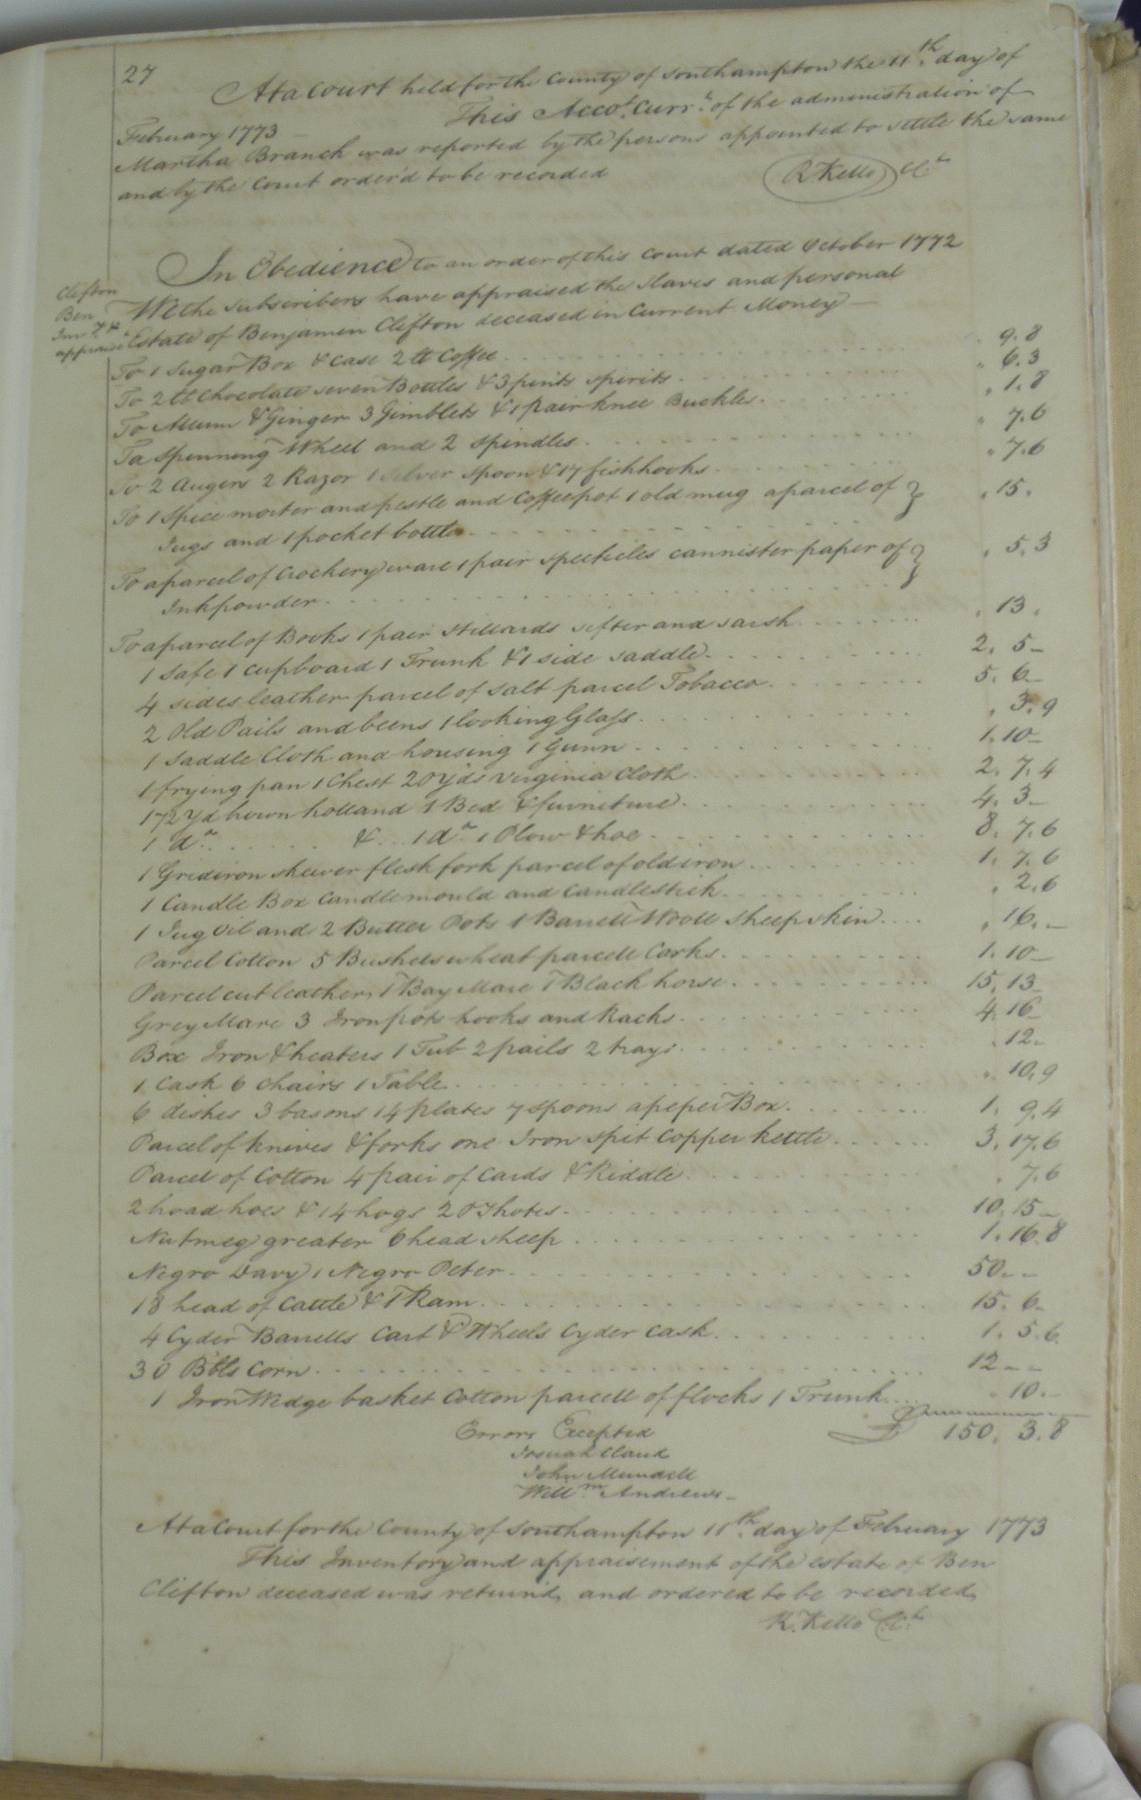 27
At a Court held for the County of Southampton the 11th day of
February 1773
This Accot. Currt. of the administration of
Martha Branch was reported by the persons appointed to settle the same
and by the Court order'd to be recorded
R Kello
In Obedience to an order of this Court dated October 1772
Clifton
Ben
appraist
We the subscribers have appraised the Slaves and personal
Estate of Benjamin Clifton deceased in Current Money
To 1 Sugar Box & Case 2 lb Coffee 9.8
To 2 lb Chocolate seven Bottles & 3 pints spirits 6.3
To Allum & Ginger 3 Gimblets & 1 pair knee Buckles 1.8
To a Spinning Wheel and 2 Spindles 7.6
To 2 Augers 2 Razor 1 silver spoon & 17 fishhooks 7.6
To 1 Spice morter and pestle and Coffeepot 1 old mug a parcel of 15.
Jugs and 1 pocket bottle
To a parcel of Crockery ware 1 pair specticles cannister paper of 5.3
Inkpowder
To a parcel of Books 1 pair Stillards sifter and sarsh 13.
1 Safe 1 cupboard 1 Trunk & 1 side saddle 2. 5 -
4 sides leather parcel of salt parcel Tobacco 5. 6 -
2 Old Pails and beens 1 looking Glass 3.9
1 Saddle Cloth and housing 1 Gunn 1.10 -
1 frying pan 1 Chest 20 yds Virginia Cloth 2. 7. 4
17 2 yd brown holland 1 Bed & furniture 4. 3 -
1 do &. 1 do 1 Plow & hoe 8. 7. 6
1 Gridiron skewer flesh fork parcel of old iron 1. 7. 6
1 Candle Box Candlemould and Candlestick 2.6
1 Jug Oil and 2 Butter Pots 1 Barrell Wooll Sheep skin 16. -
Parcel Cotton 5 Bushels wheat parcell Corks 1.10 -
Parcel cut leather 1 Bay Mare 1 Black horse 15. 13
Grey Mare 3 Iron pots hooks and Racks 4. 16
Box Iron & heaters 1 Tub 2 pails 2 trays 12.
1 Cask 6 chairs 1 Table 10.9
6 dishes 3 basons 14 plates 7 spoons a peper Box 1. 9. 4
Parcel of knives & forks one Iron spit Copper kettle 3. 17. 6
Parcel of Cotton 4 pair of Cards & Riddle 7.6
2 hoes & 14 hogs 20 Shotes 10. 15 -
Nutmeg greater 6 head sheep 1. 16. 8
Negro Davy 1 Negro Peter 50 - -
18 head of Cattle & 1 Ram 15. 6 -
4 Cyder Barrells Cart & Wheels Cyder Cask 1. 5. 6
30 Bbls Corn 12 - -
1 Iron Wedge basket Cotton parcell of flocks 1 Trunk 10. -
Errors Excepted £ 150. 3. 8
Josuah Claud
John Mundell
Willm Andrews
At a Court for the County of Southampton 11th day of February 1773
This Inventory and appraisement of the estate of Ben
Clifton deceased was return'd, and ordered to be recorded
R. Kello